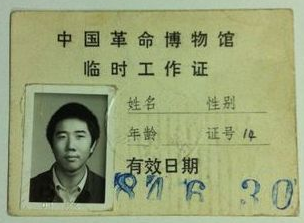 中国革命博物馆
临时工作证
姓名 性别
年龄 证号 14
有效日期
84 6 30